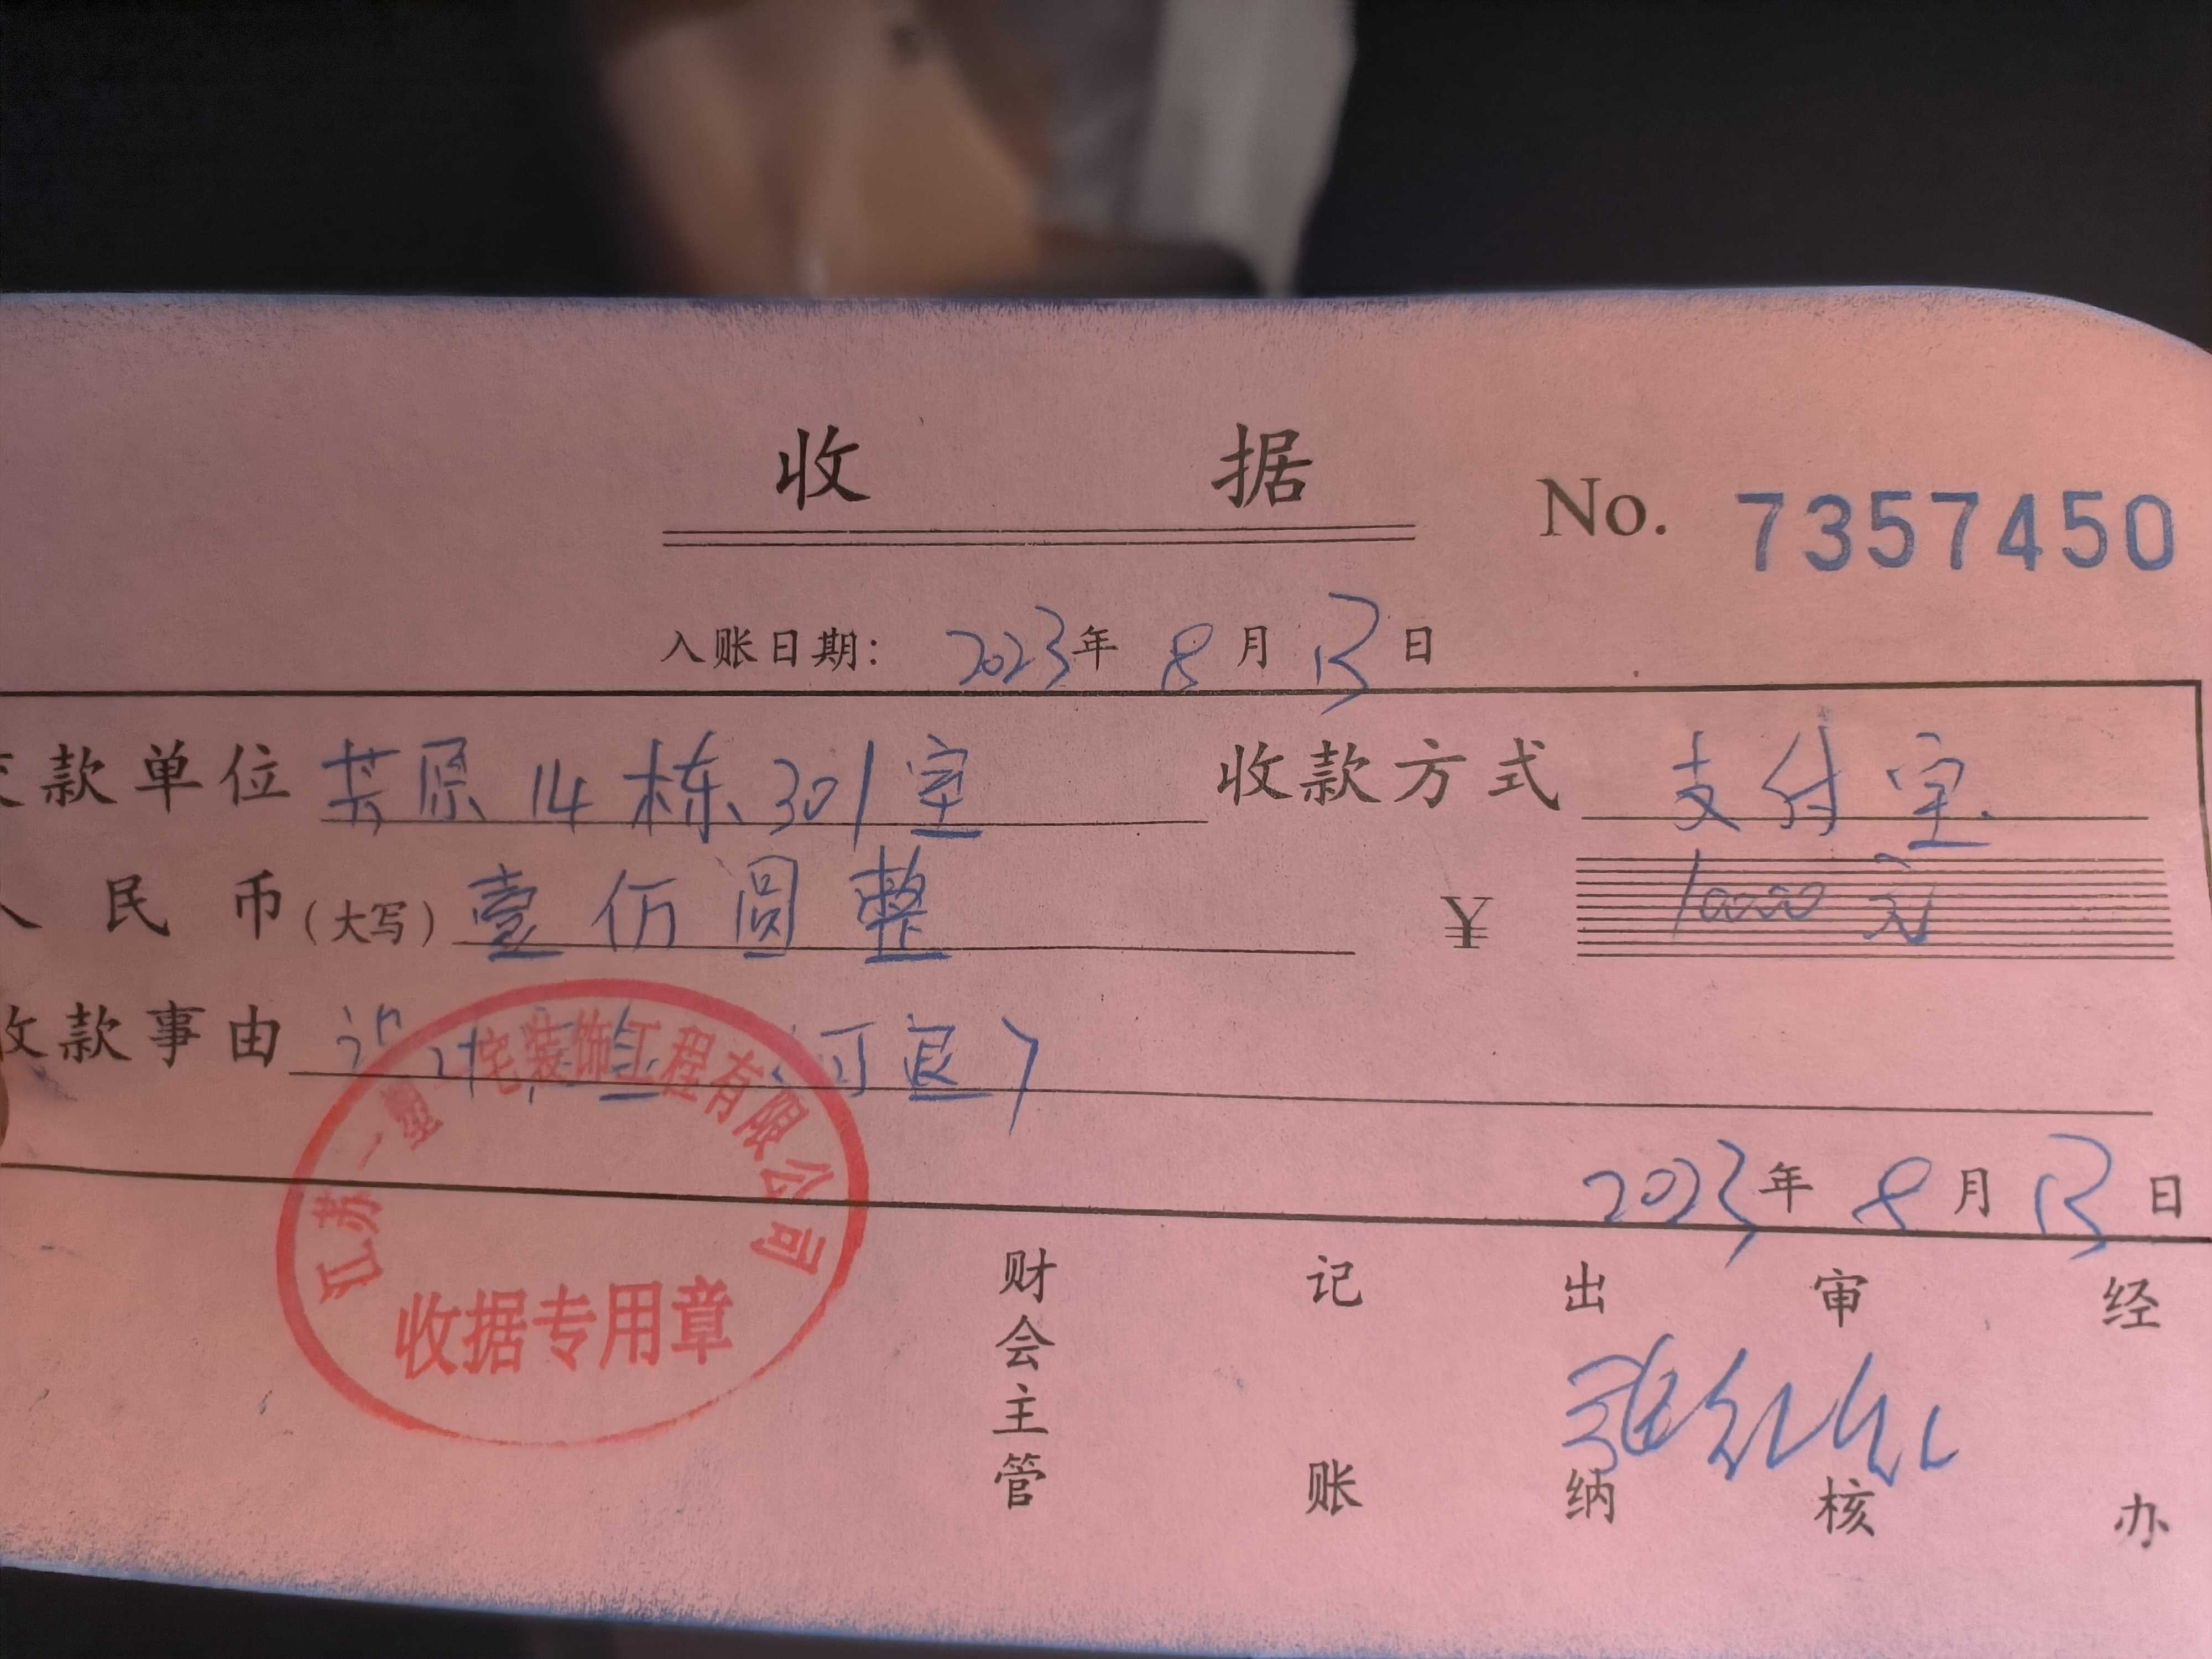 收 据
No. 7357450
入账日期: 2023年 8月 13日
款单位 芸原14栋301室 收款方式 支付宝
民 币(大写) 壹仟圆整 ¥ 10000元
收款事由 设计定金(订金)
2023年 8月 13日
苏一墅一宅装饰工程有限公司
收据专用章
财会主管 记账 出纳 审核 经办
张红红